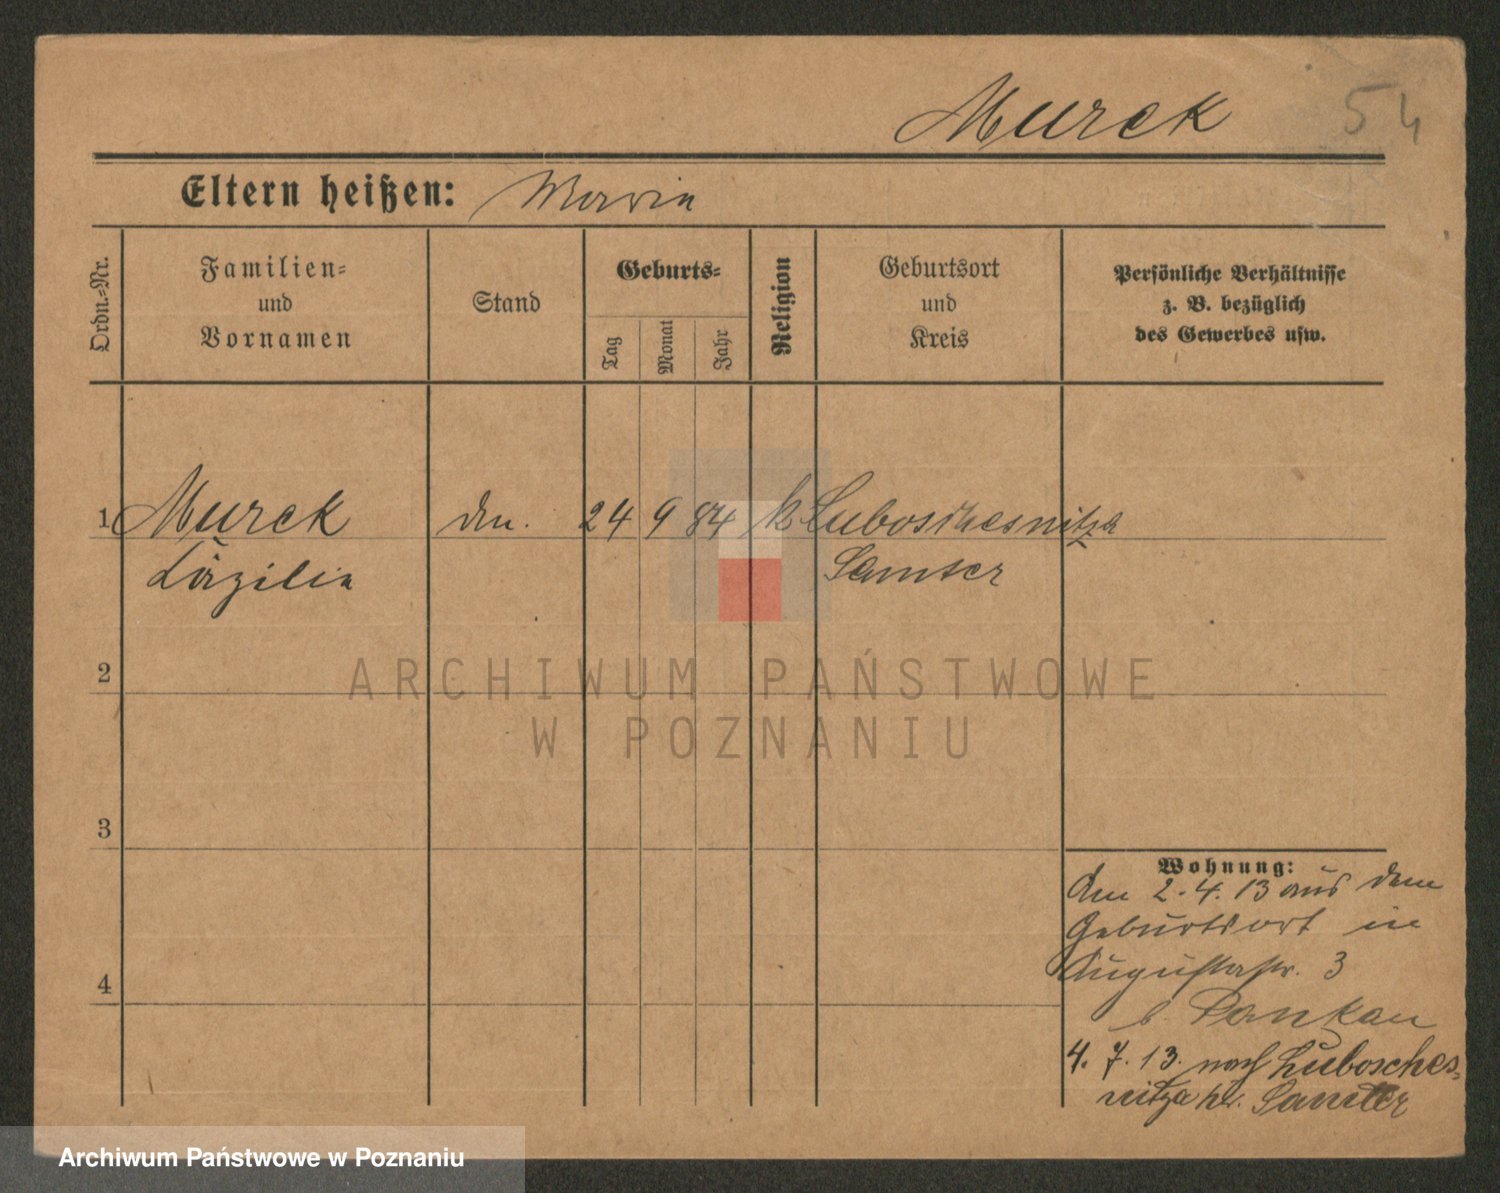 Murek
54
Eltern heißen: Maria
Ordn.-Nr.
Familien-
und
Vornamen
Stand
Geburts-
Tag
Monat
Jahr
Religion
Geburtsort
und
Kreis
Persönliche Verhältnisse
z. B. bezüglich
des Gewerbes usw.
1 Murek 24 9 84 k Luboschesnitza
Cäzilia Samter
2
3
4
Wohnung:
Am 2.4.13 aus dem
Geburtsort in
Augustastr. 3
b. Pankau
4. 7. 13. nach Lubosches-
nitza Kr. Samter
ARCHIWUM PAŃSTWOWE
W POZNANIU
Archiwum Państwowe w Poznaniu